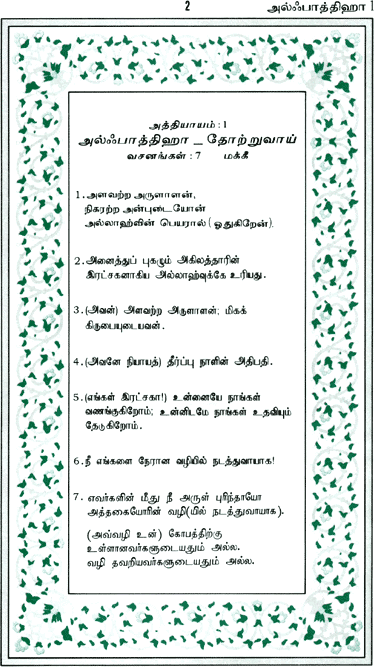 2
அல்ஃபாத்திஹா 1
அத்தியாயம் : 1
அல்ஃபாத்திஹா – தோற்றுவாய்
வசனங்கள் : 7 மக்கீ
1. அளவற்ற அருளாளன்,
நிகரற்ற அன்புடையோன்
அல்லாஹ்வின் பெயரால் ( ஓதுகிறேன்).
2. அனைத்துப் புகழும் அகிலத்தாரின்
இரட்சகனாகிய அல்லாஹ்வுக்கே உரியது.
3. (அவன்) அளவற்ற அருளாளன்; மிகக்
கிருபையுடையவன்.
4. (அவனே நியாயத்) தீர்ப்பு நாளின் அதிபதி.
5. (எங்கள் இரட்சகா!) உன்னையே நாங்கள்
வணங்குகிறோம்; உன்னிடமே நாங்கள் உதவியும்
தேடுகிறோம்.
6. நீ எங்களை நேரான வழியில் நடத்துவாயாக!
7. எவர்களின் மீது நீ அருள் புரிந்தாயோ
அத்தகையோரின் வழி(யில் நடத்துவாயாக).
(அவ்வழி உன்) கோபத்திற்கு
உள்ளானவர்களுடையதும் அல்ல.
வழி தவறியவர்களுடையதும் அல்ல.